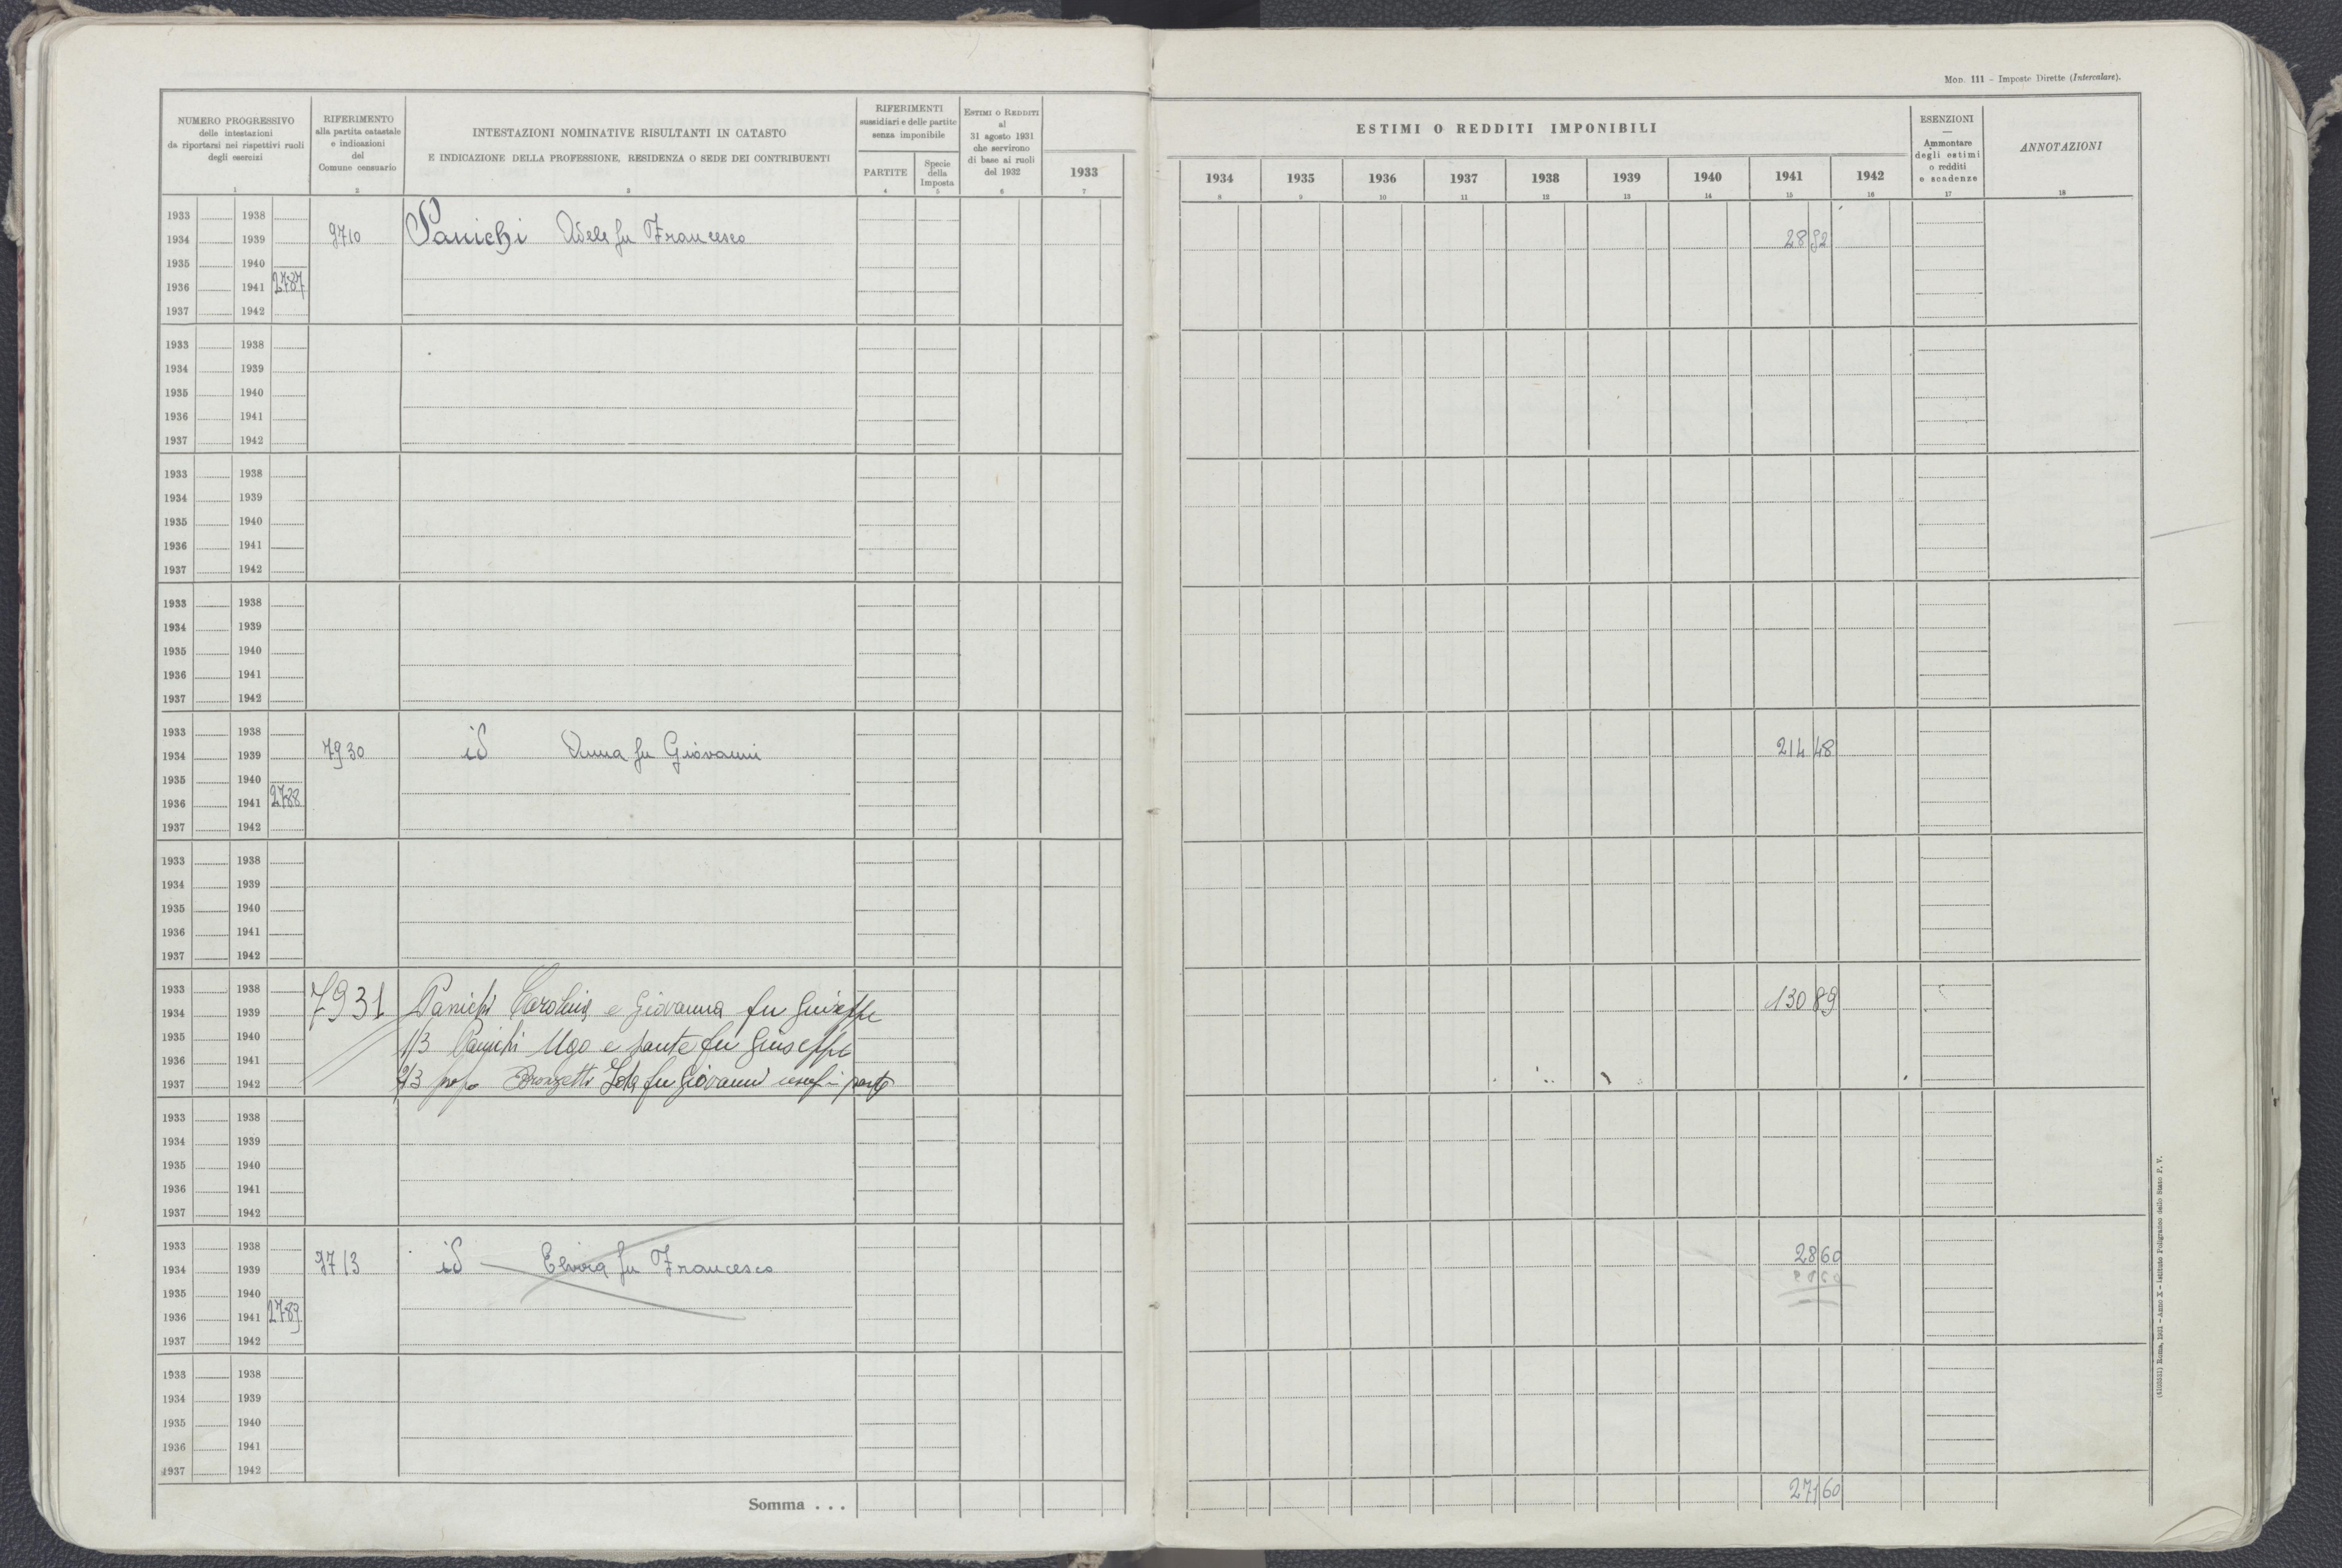 Mon. 111 - Imposte Dirette (Intercalare).
NUMERO PROGRESSIVO
delle intestazioni
da riportarsi nei rispettivi ruoli
degli esercizi
1
RIFERIMENTO
alla partita catastale
e indicazioni
del
Comune censuario
2
INTESTAZIONI NOMINATIVE RISULTANTI IN CATASTO
E INDICAZIONE DELLA PROFESSIONE, RESIDENZA O SEDE DEI CONTRIBUENTI
3
RIFERIMENTI
sussidiari e delle partite
senza imponibile
PARTITE
4
Specie
della
Imposta
5
ESTIMI O REDDITI
al
31 agosto 1931
che servirono
di base ai ruoli
del 1932
6
1933
7
ESTIMI O REDDITI IMPONIBILI
1934 1935 1936 1937 1938 1939 1940 1941 1942
8 9 10 11 12 13 14 15 16
ESENZIONI
—
Ammontare
degli estimi
o redditi
e scadenze
17
ANNOTAZIONI
18
1933 1938
1934 1939 9710 Panichi Adele fu Francesco 28 92
1935 1940
1936 1941 2787
1937 1942
1933 1938
1934 1939
1935 1940
1936 1941
1937 1942
1933 1938
1934 1939
1935 1940
1936 1941
1937 1942
1933 1938
1934 1939
1935 1940
1936 1941
1937 1942
1933 1938
1934 1939 7930 id Anna fu Giovanni 214 48
1935 1940
1936 1941 2788
1937 1942
1933 1938
1934 1939
1935 1940
1936 1941
1937 1942
1933 1938
1934 1939 7931 Panichi Carolina e Giovanna fu Giuseppe 130 89
1935 1940 1/3 Panichi Ugo e Sante fu Giuseppe
1936 1941
1937 1942 2/3 Bronzetti fu Giovanni usuf in parte
1933 1938
1934 1939
1935 1940
1936 1941
1937 1942
1933 1938
1934 1939 9713 id Elvira fu Francesco 28 60
1935 1940
1936 1941 2789
1937 1942
1933 1938
1934 1939
1935 1940
1936 1941
1937 1942
Somma . . . 271 60
(4103551) Roma, 1931 - Anno X - Istituto Poligrafico dello Stato P. V.